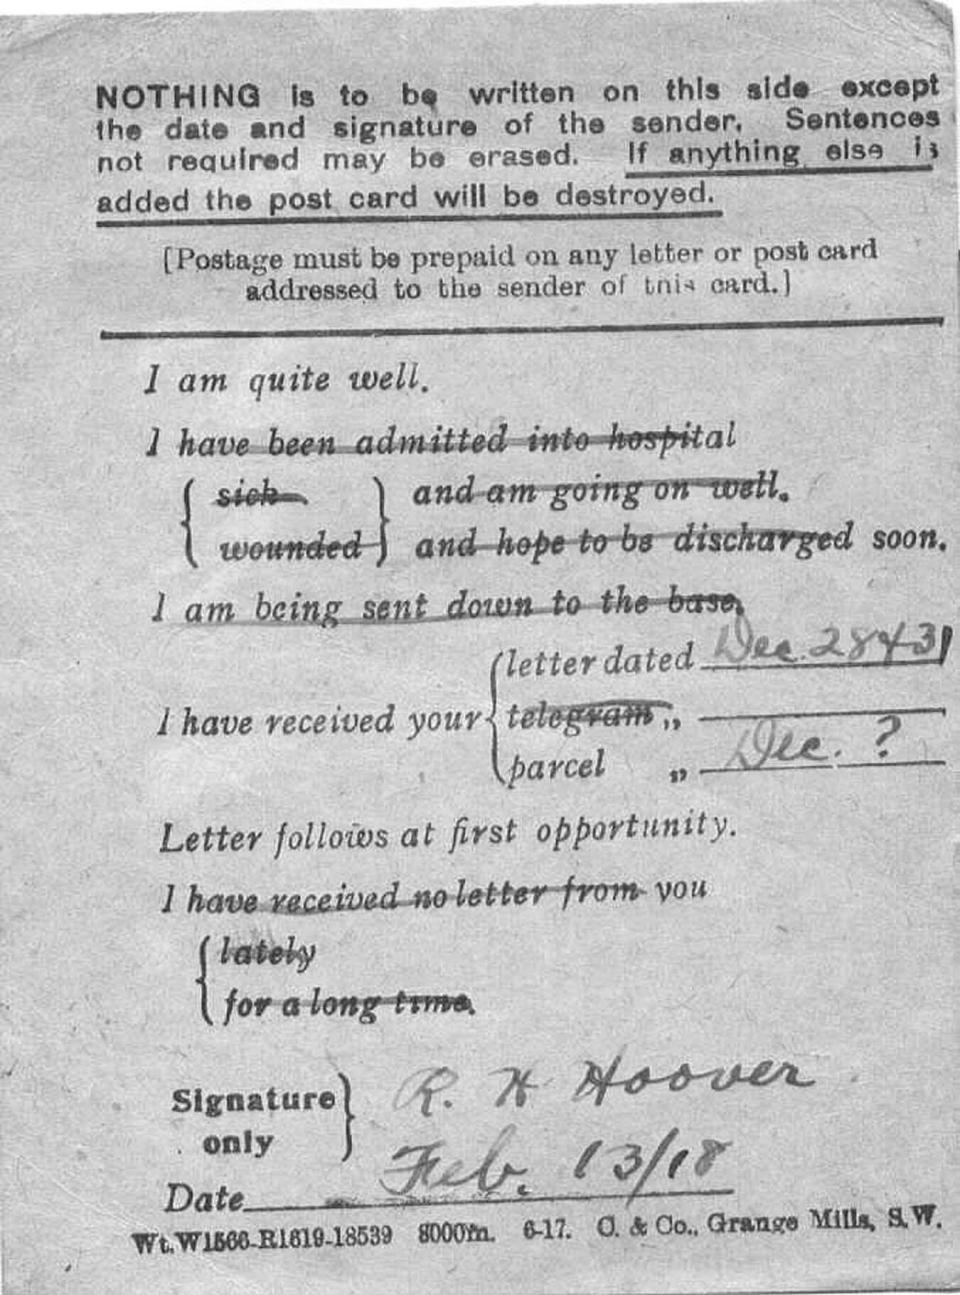 NOTHING is to be written on this side except
the date and signature of the sender. Sentences
not required may be erased. If anything else is
added the post card will be destroyed.
[Postage must be prepaid on any letter or post card
addressed to the sender of this card.]
I am quite well.
I have been admitted into hospital
{ sick } and am going on well.
{ wounded } and hope to be discharged soon.
I am being sent down to the base.
letter dated Dec. 28 & 31
I have received your { telegram „
parcel „ Dec. ?
Letter follows at first opportunity.
I have received no letter from you
{ lately
for a long time.
Signature } R. H Hoover
only
Date Feb. 13/18
Wt.W1566-R1619-18539 8000m. 6-17. C. & Co., Grange Mills, S.W.